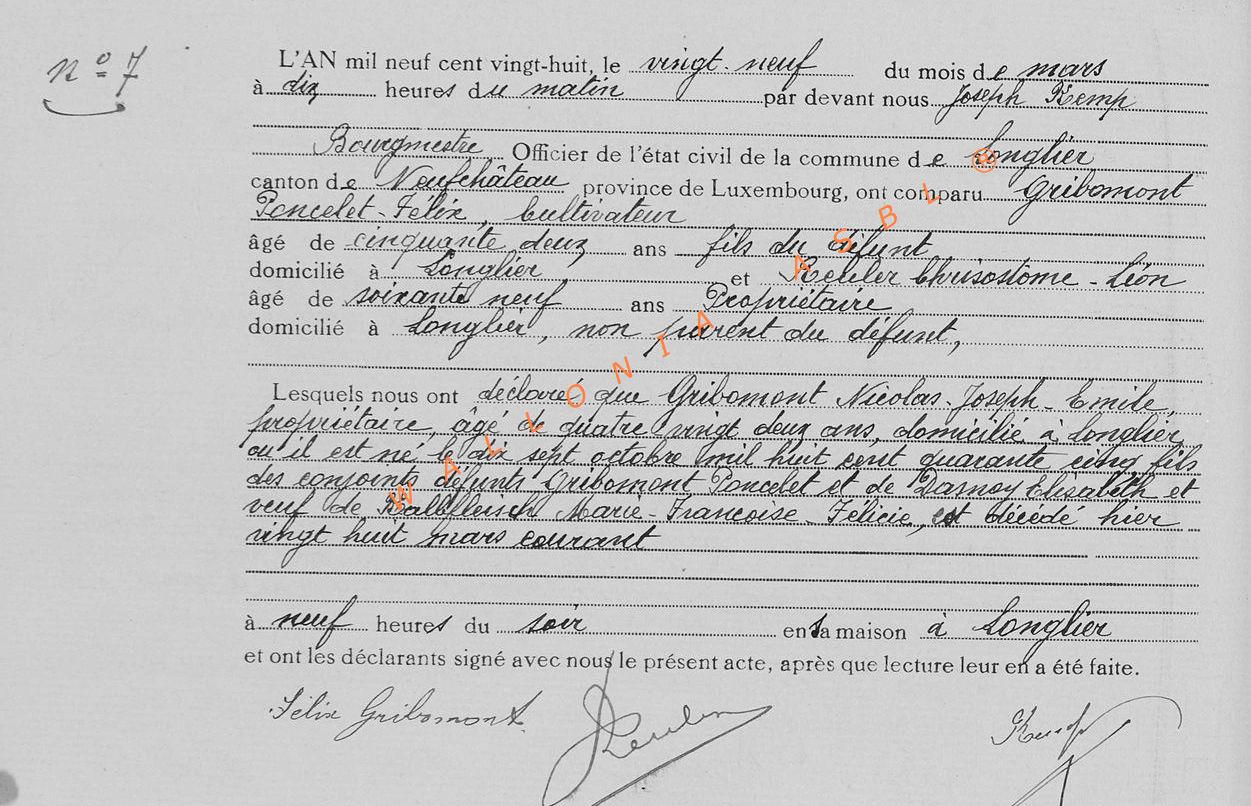 N° 7
L'AN mil neuf cent vingt-huit, le vingt-neuf du mois de mars
à dix heures du matin par devant nous Joseph Kemp
Bourgmestre Officier de l'état civil de la commune de Longlier
canton de Neufchâteau province de Luxembourg, ont comparu Gribomont
Poncelet-Félix, cultivateur
âgé de cinquante deux ans fils du défunt
domicilié à Longlier et Chrisostome-Léon
âgé de soixante neuf ans Propriétaire
domicilié à Longlier, non parent du défunt,
Lesquels nous ont déclaré que Gribomont Nicolas-Joseph-Emile,
propriétaire, âgé de quatre vingt deux ans, domicilié à Longlier,
où il est né le dix sept octobre mil huit cent quarante cinq fils
des conjoints défunts Gribomont Poncelet et de Darnoy Elisabeth et
veuf de Kalbfleisch Marie-Françoise-Félicie, est décédé hier
vingt huit mars courant
à neuf heures du soir en sa maison à Longlier
et ont les déclarants signé avec nous le présent acte, après que lecture leur en a été faite.
Félix Gribomont Kemp
WALLONIA ASBL @